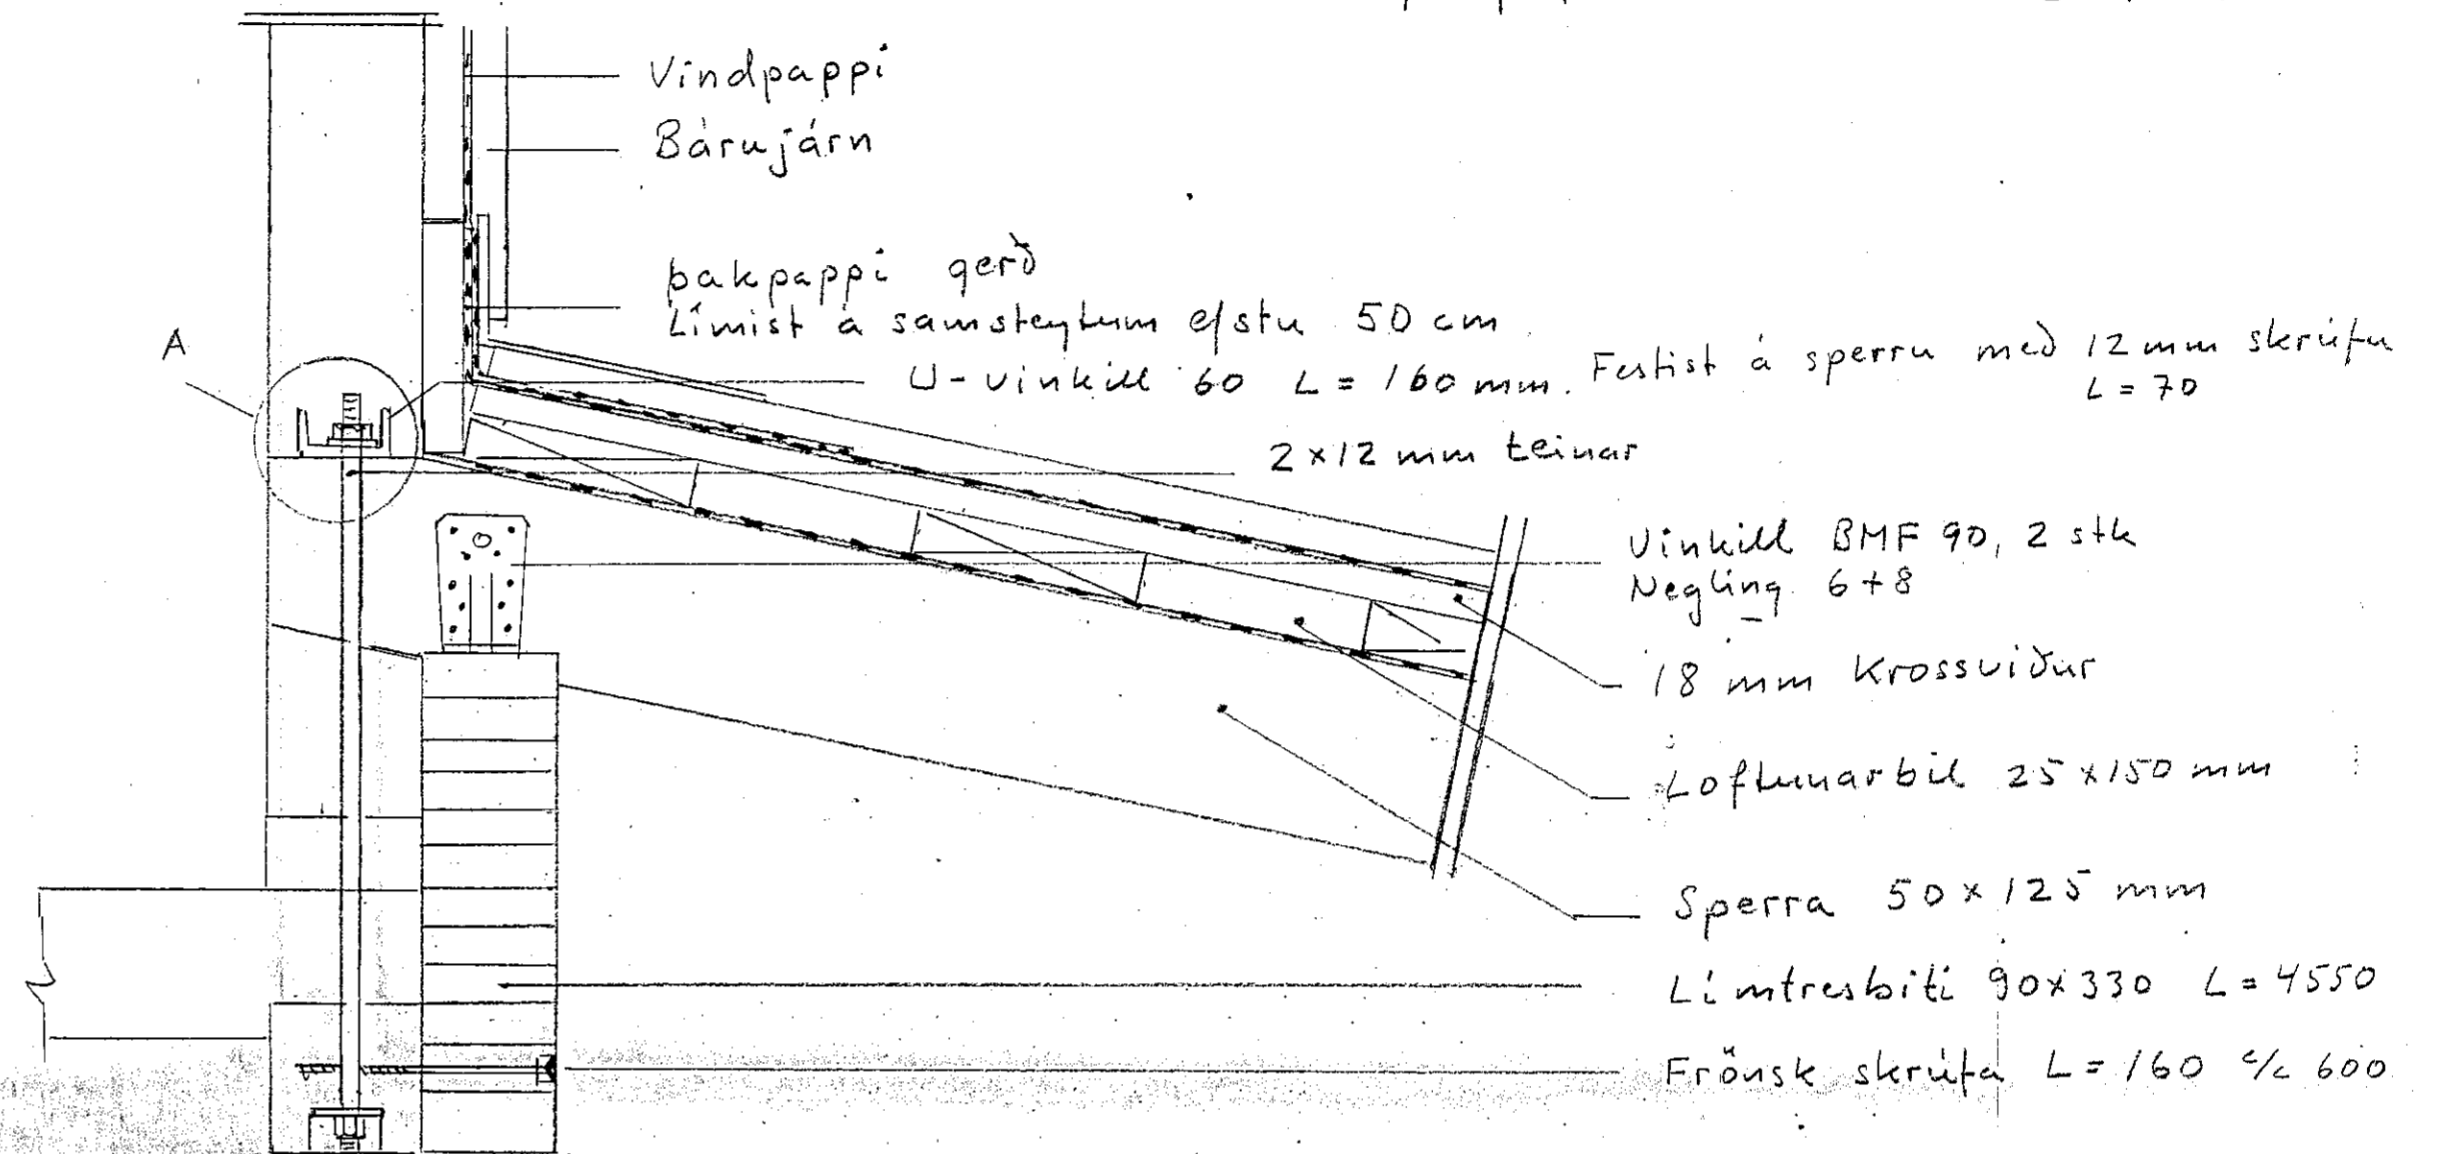 Vindpappi
Bárujárn
þakpappi gerð
Límist á samskeytum efstu 50 cm
A
U-vinkill 60 L = 160 mm. Festist á sperru með 12 mm skrúfu
L = 70
2x12 mm teinar
Vinkill BMF 90, 2 stk
Negling 6+8
18 mm Krossviður
Loftunarbil 25x150 mm
Sperra 50x125 mm
Límtresbiti 90x330 L = 4550
Frönsk skrúfa L = 160 c/c 600